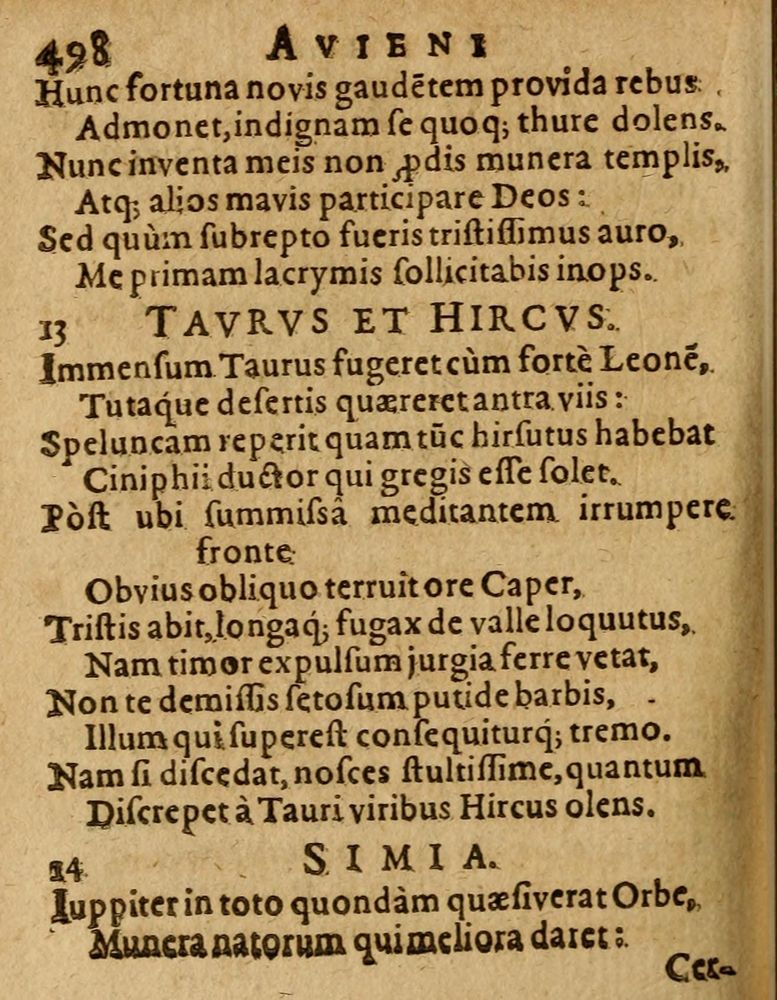 498 AVIENI
Hunc fortuna novis gaudētem provida rebus
Admonet, indignam ſe quoq; thure dolens.
Nunc inventa meis non ꝓdis munera templis,
Atq; alios mavis participare Deos:
Sed quùm ſubrepto fueris triſtiſſimus auro,
Me primam lacrymis ſollicitabis inops.
13 TAVRVS ET HIRCVS.
Immenſum Taurus fugeret cùm fortè Leonē,
Tutaque deſertis quæreret antra viis:
Speluncam reperit quam tūc hirſutus habebat
Ciniphii ductor qui gregis eſſe ſolet.
Pòſt ubi ſummiſsâ meditantem irrumpere
fronte
Obvius obliquo terruit ore Caper,
Triſtis abit, longaq́; fugax de valle loquutus,
Nam timor expulſum jurgia ferre vetat,
Non te demiſſis ſetoſum putide barbis,
Illum qui ſupereſt conſequiturq́; tremo.
Nam ſi diſcedat, noſces ſtultiſſime, quantum
Diſcrepet à Tauri viribus Hircus olens.
14 SIMIA.
Iuppiter in toto quondàm quæſiverat Orbe,
Munera natorum qui meliora daret:
Cer-